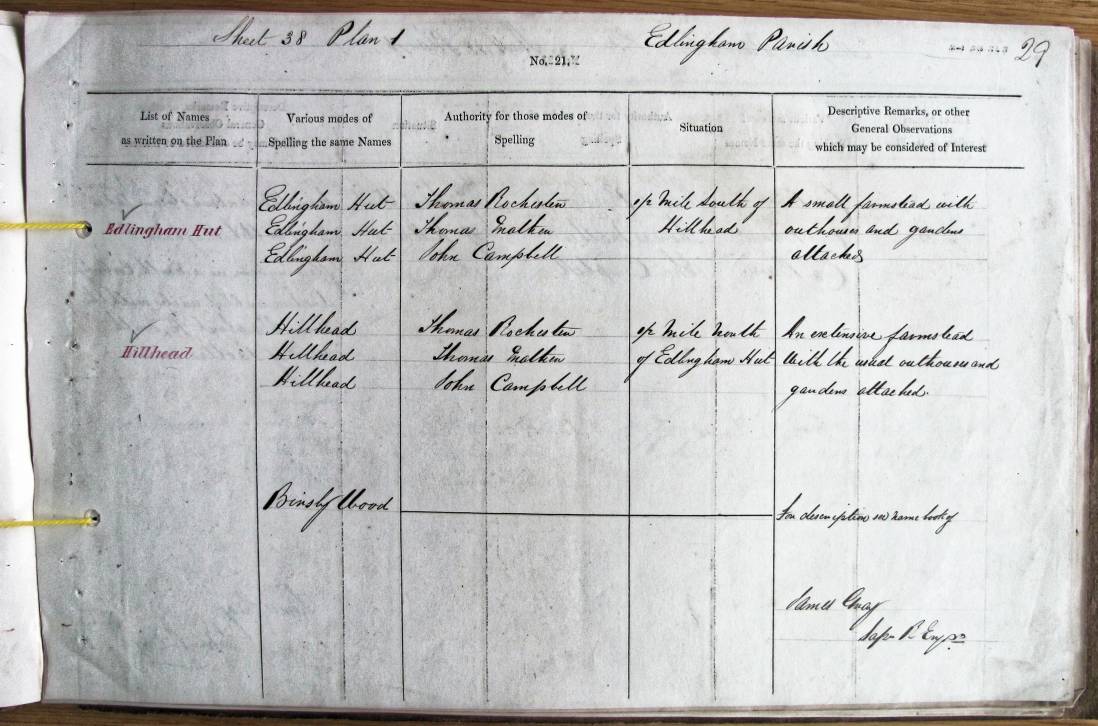 Sheet 38 Plan 1
Edlingham Parish
29
No. 21.
List of Names
as written on the Plan
Various modes of
Spelling the same Names
Authority for those modes of
Spelling
Situation
Descriptive Remarks, or other
General Observations
which may be considered of Interest
Edlingham Hut Thomas Rochester Mile South of A small farmstead with
Edlingham Hut Edlingham Hut Thomas Hillhead outhouses and gardens
Edlingham Hut John Campbell attached
Hillhead Thomas Rochester Mile North An extensive farmstead
Hillhead Hillhead Thomas of Edlingham Hut With the usual outhouses and
Hillhead John Campbell gardens attached.
Wood
For description see name book of
James Gray
Sapr R. Engrs